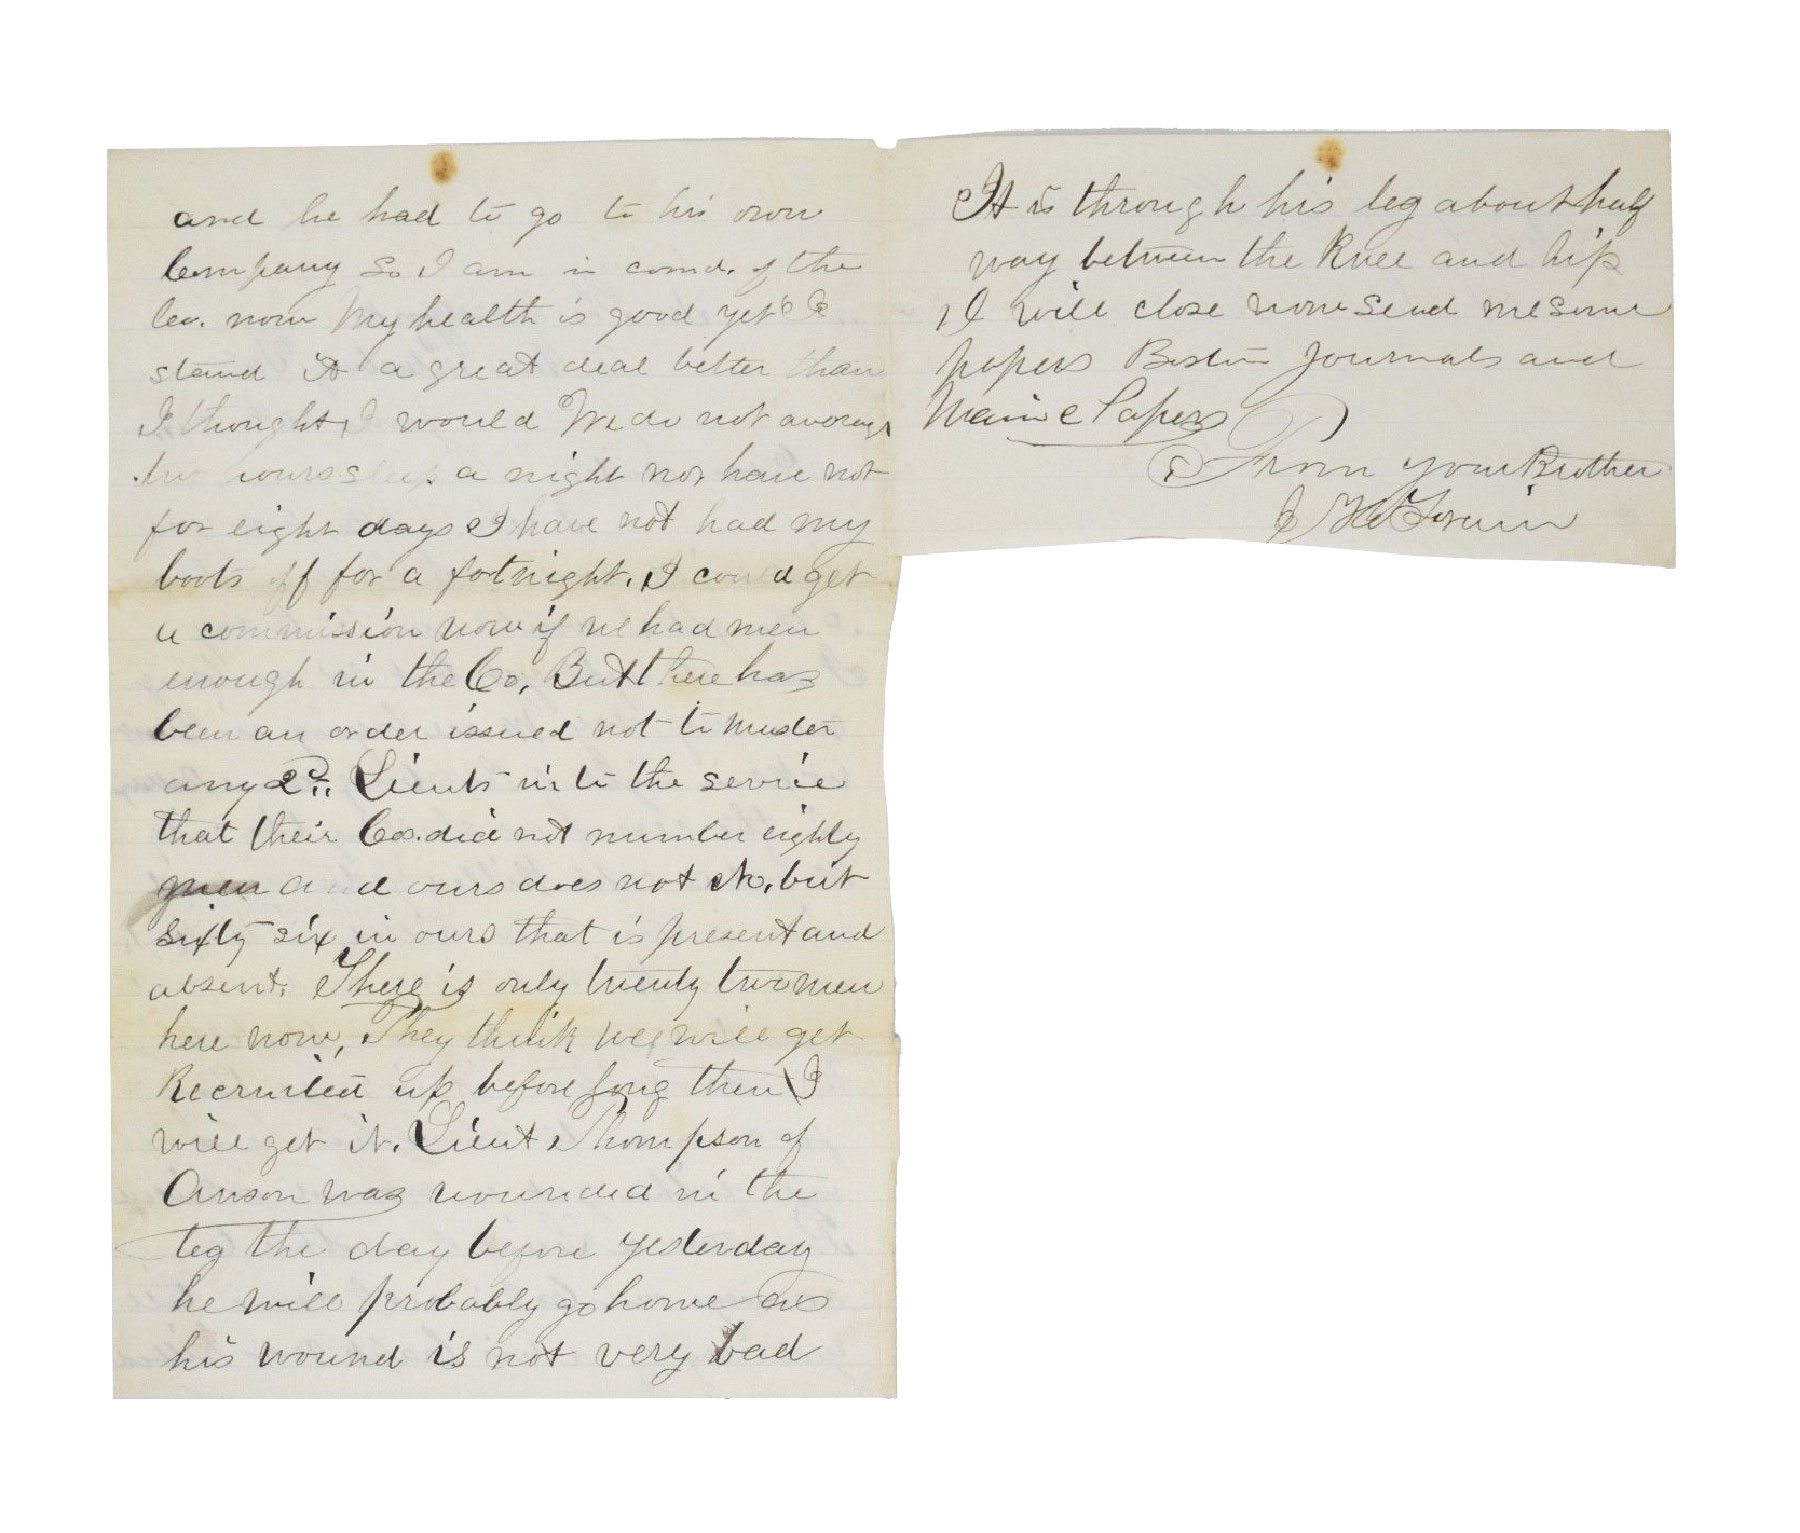 and he had to go to his own
Company So I am in comd. of the
Co. now My health is good yet I
stand it a great deal better than
I thought I would We do not average
two hours sleep a night nor have not
for eight days I have not had my
boots off for a fotnight. I could get
a commission now if we had men
enough in the Co, But there has
been an order issued not to muster
any 2d. Lieuts in to the service
that their Co. did not number eighty
men and ours does not No, but
sixty six in ours that is present and
absent. There is only twenty two men
here now, They think we will get
Recruited up before long then I
will get it. Lieut Thompson of
Anson was wounded in the
leg the day before yesterday
he will probably go home as
his wound is not very bad
It is through his leg about half
way between the Knee and hip
I will close now send me some
papers Boston Journals and
Maine Papers
From your Brother
J